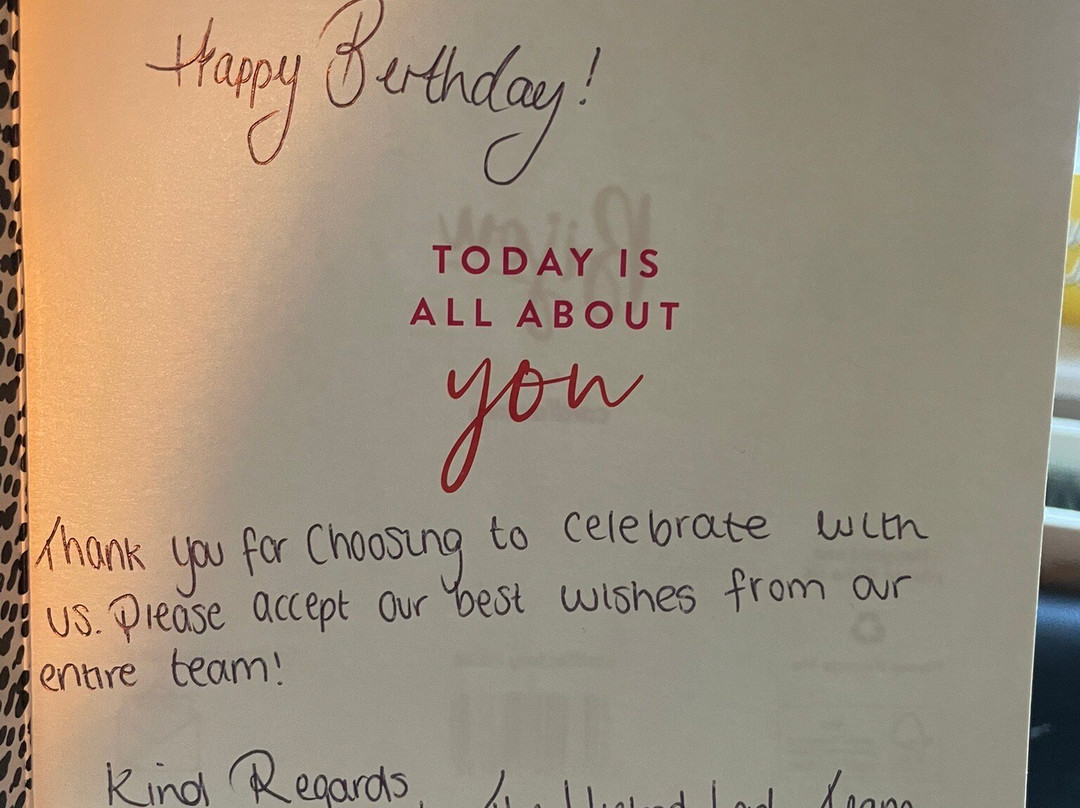 Happy Birthday!
TODAY IS
ALL ABOUT
you
Thank you for Choosing to celebrate with
us. Please accept our best wishes from our
entire team!
Kind Regards,
team